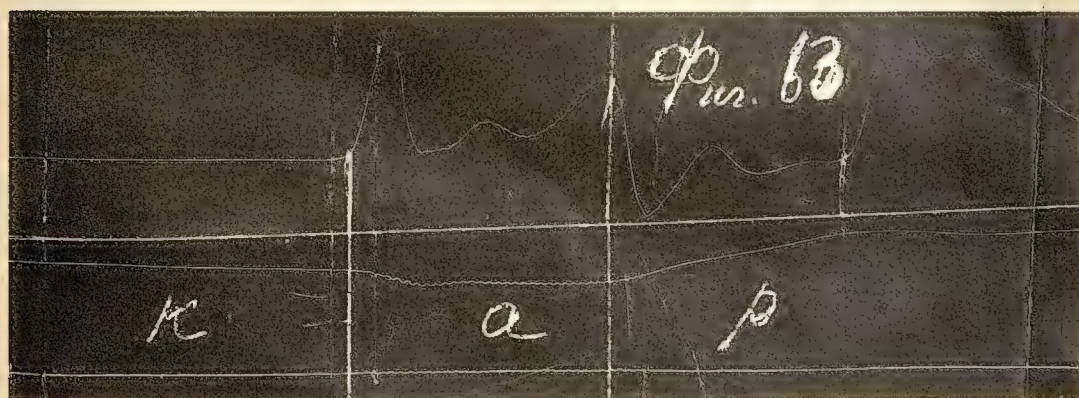 Фиг. 63
к а р